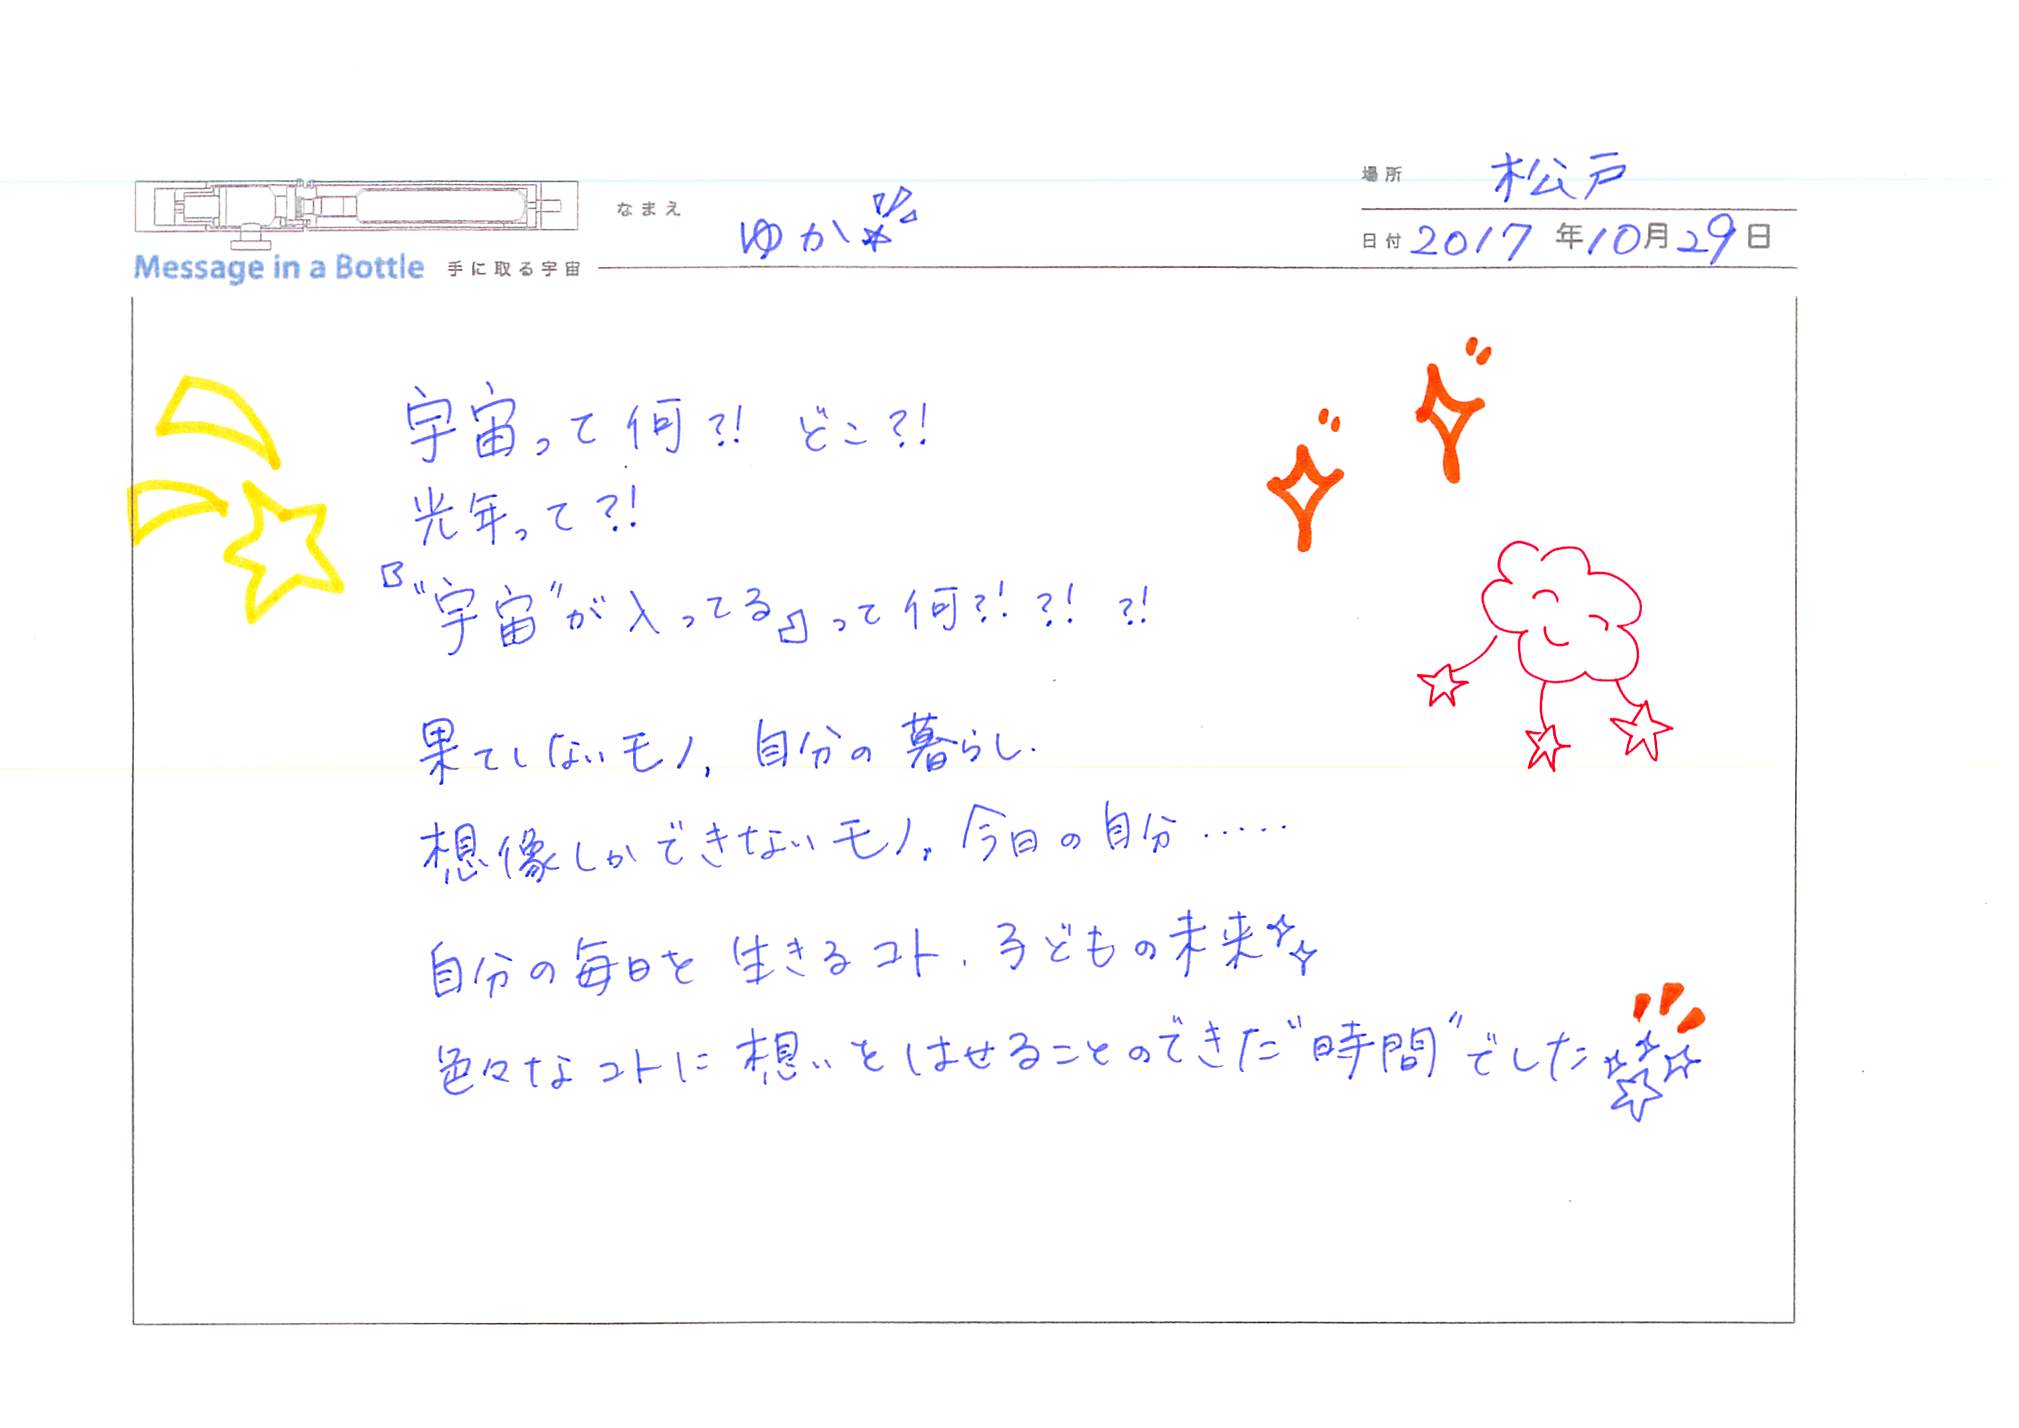 場所 松戸
なまえ ゆか☆
日付 2017年10月29日
Message in a Bottle 手に取る宇宙
宇宙って何?! どこ?!
光年って?!
『"宇宙"が入ってる』って何?! ?! ?!
果てしないモノ,自分の暮らし.
想像しかできないモノ,今日の自分.....
自分の毎日を生きるコト.子どもの未来
色々なコトに想いをはせることのできた"時間"でした